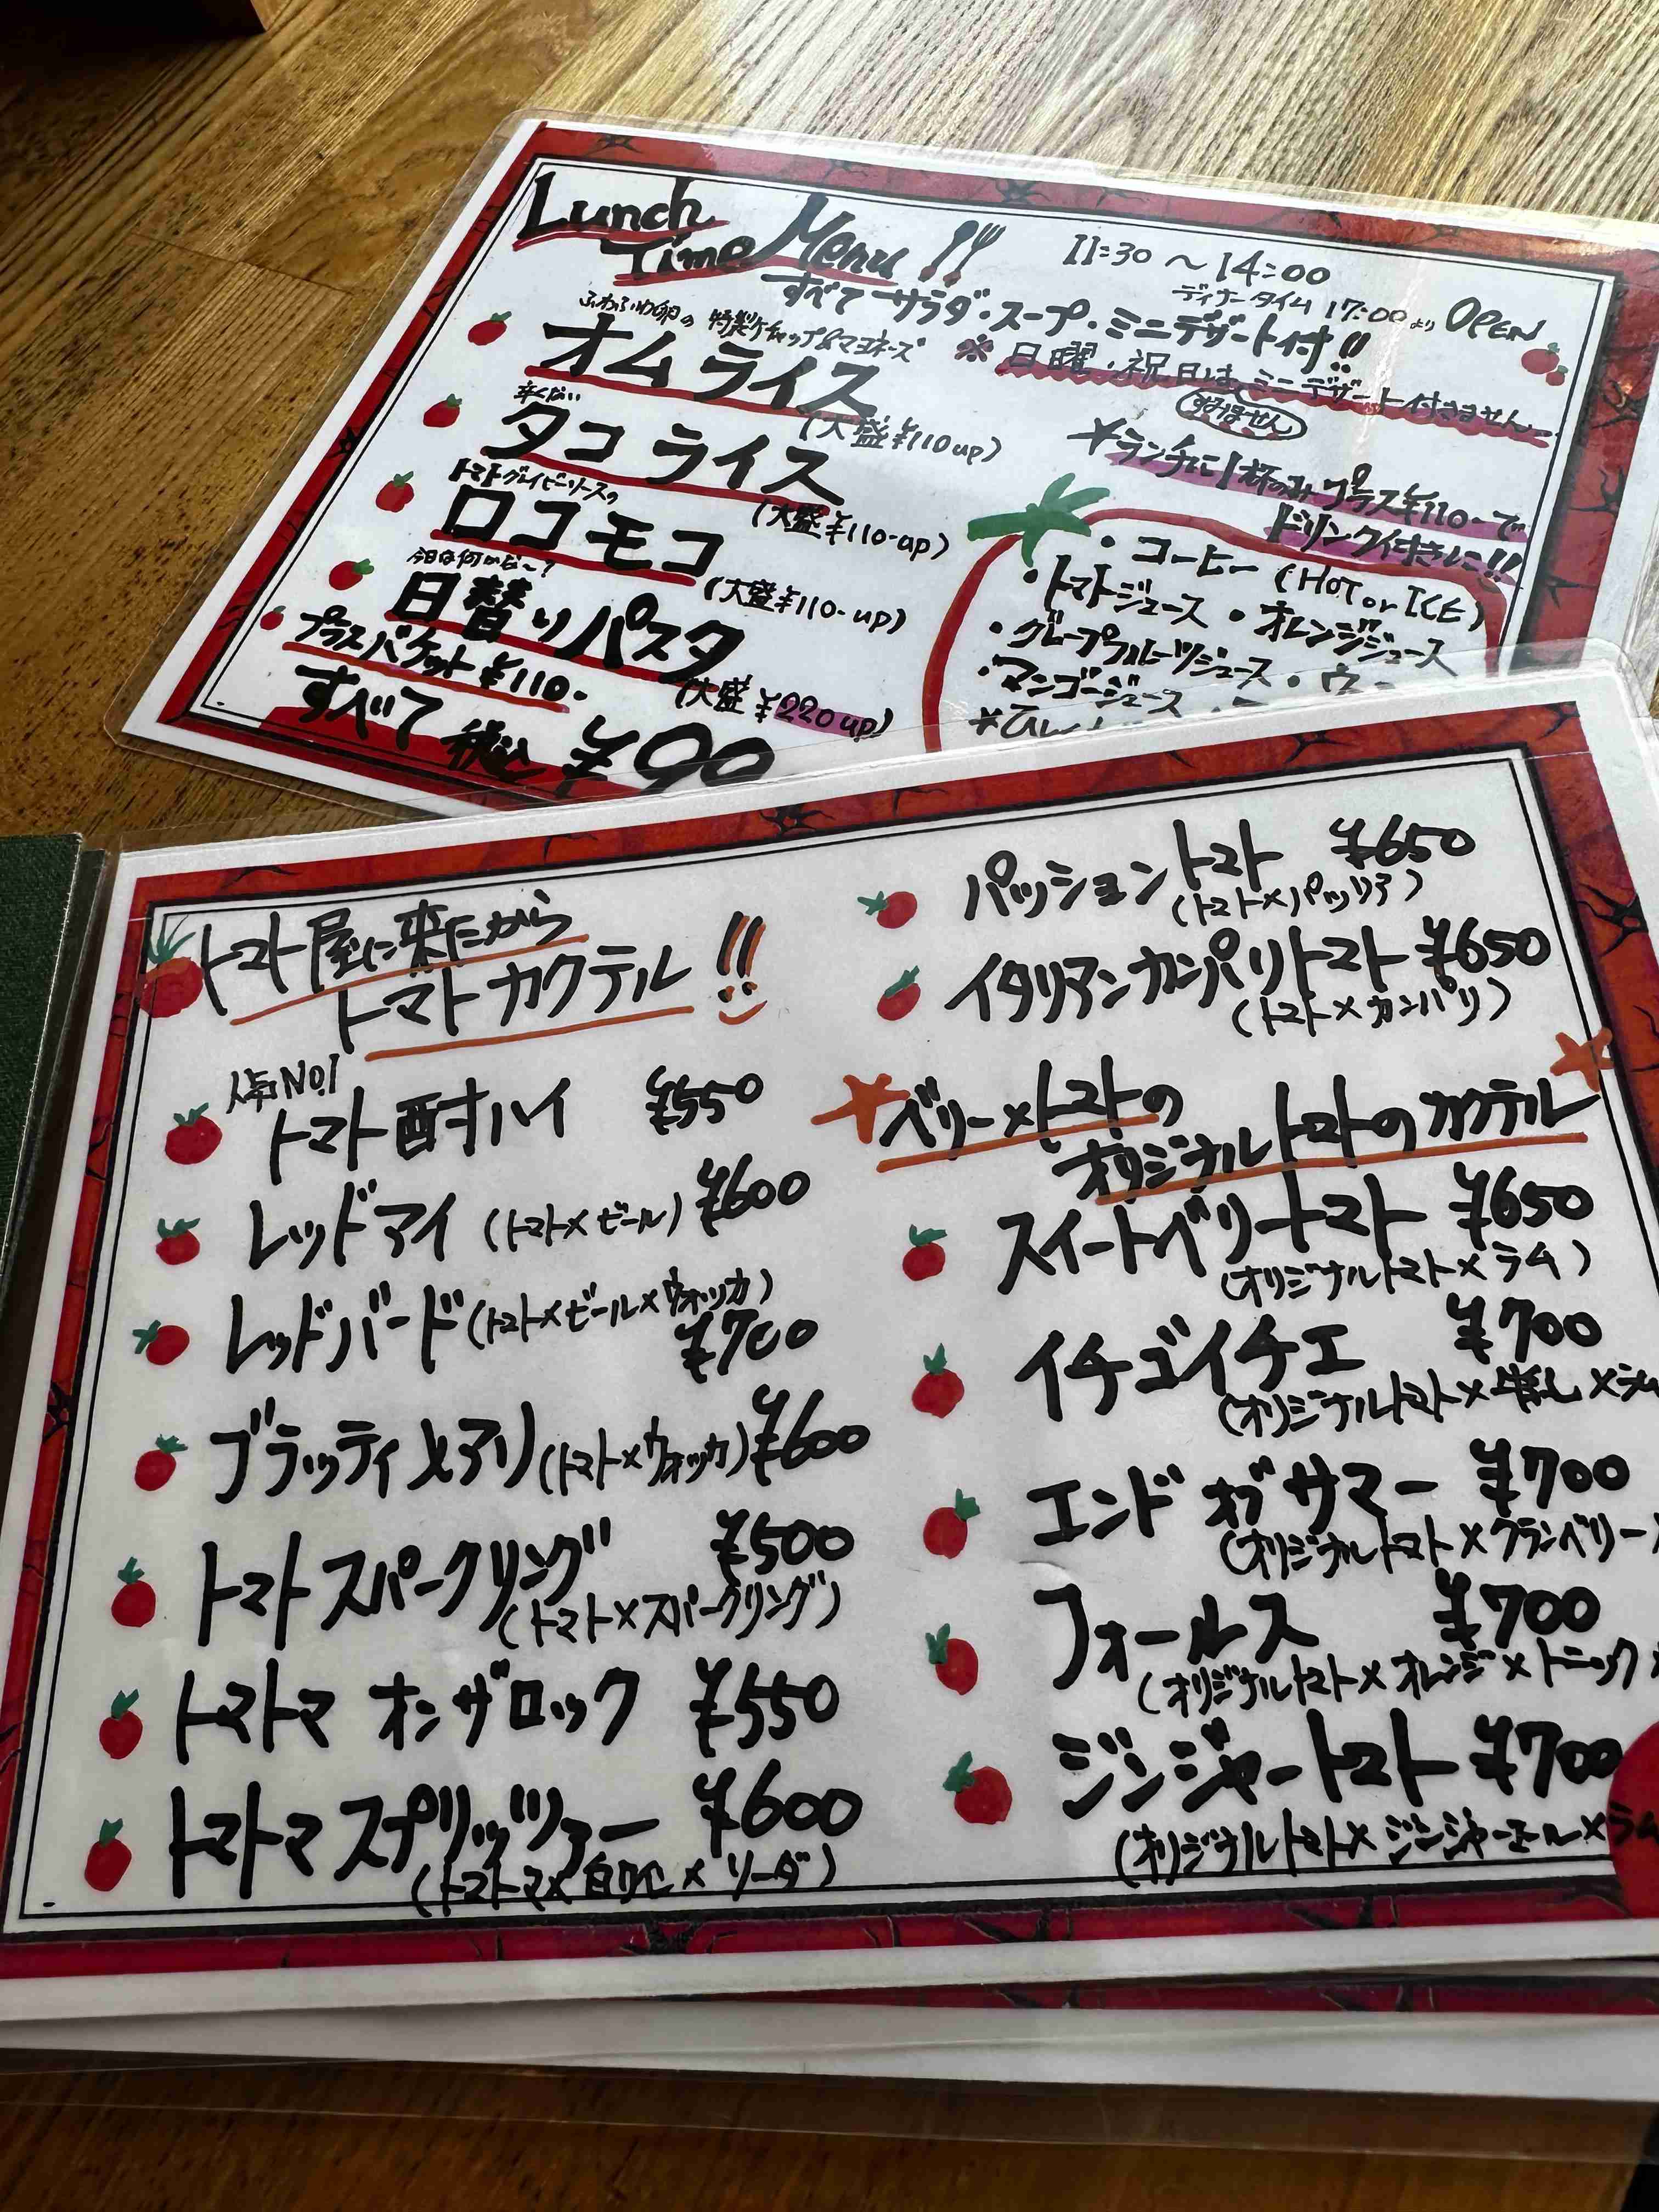 Lunch
Time Menu
11:30 ～ 14:00
ディナータイム 17:00より OPEN
すべてサラダ・スープ・ミニデザート付!!
※日曜・祝日はミニデザート付きません
すみません
ふわふわ卵の 特製ケチャップ&マヨネーズ
オムライス
(大盛¥110up)
辛くない
タコライス
(大盛¥110-up)
トマトグレイビーソースの
ロコモコ
(大盛¥110-up)
今日は何かな～?
日替りパスタ
(大盛¥220up)
プラスバケット¥110-
すべて 税込 ¥99
ランチに1杯のみプラス¥110-で
ドリンク付きに!!
・コーヒー (HOT or ICE)
・トマトジュース ・オレンジジュース
・グレープフルーツジュース
・マンゴージュース ・ウー
トマト屋に来たから
トマトカクテル!!
人気No.1
トマト酎ハイ ¥550
レッドアイ (トマト×ビール) ¥600
レッドバード(トマト×ビール×ウォッカ)
¥700
ブラッディメアリ(トマト×ウォッカ)¥600
トマトスパークリング ¥500
(トマト×スパークリング)
トマトマ オンザロック ¥550
トマトマ スプリッツァー ¥600
(トマトマ×白ワイン×ソーダ)
パッショントマト ¥650
(トマト×パッソア)
イタリアンカンパリトマト ¥650
(トマト×カンパリ)
ベリー×トマトの
オリジナルトマトのカクテル
スイートベリートマト ¥650
(オリジナルトマト×ラム)
イチゴイチエ ¥700
(オリジナルトマト×牛乳×ラム
エンドオブサマー ¥700
(オリジナルトマト×クランベリー×
フォールス ¥700
(オリジナルトマト×オレンジ×トニック×
ジンジャートマト ¥700
(オリジナルトマト×ジンジャーエール×ラム